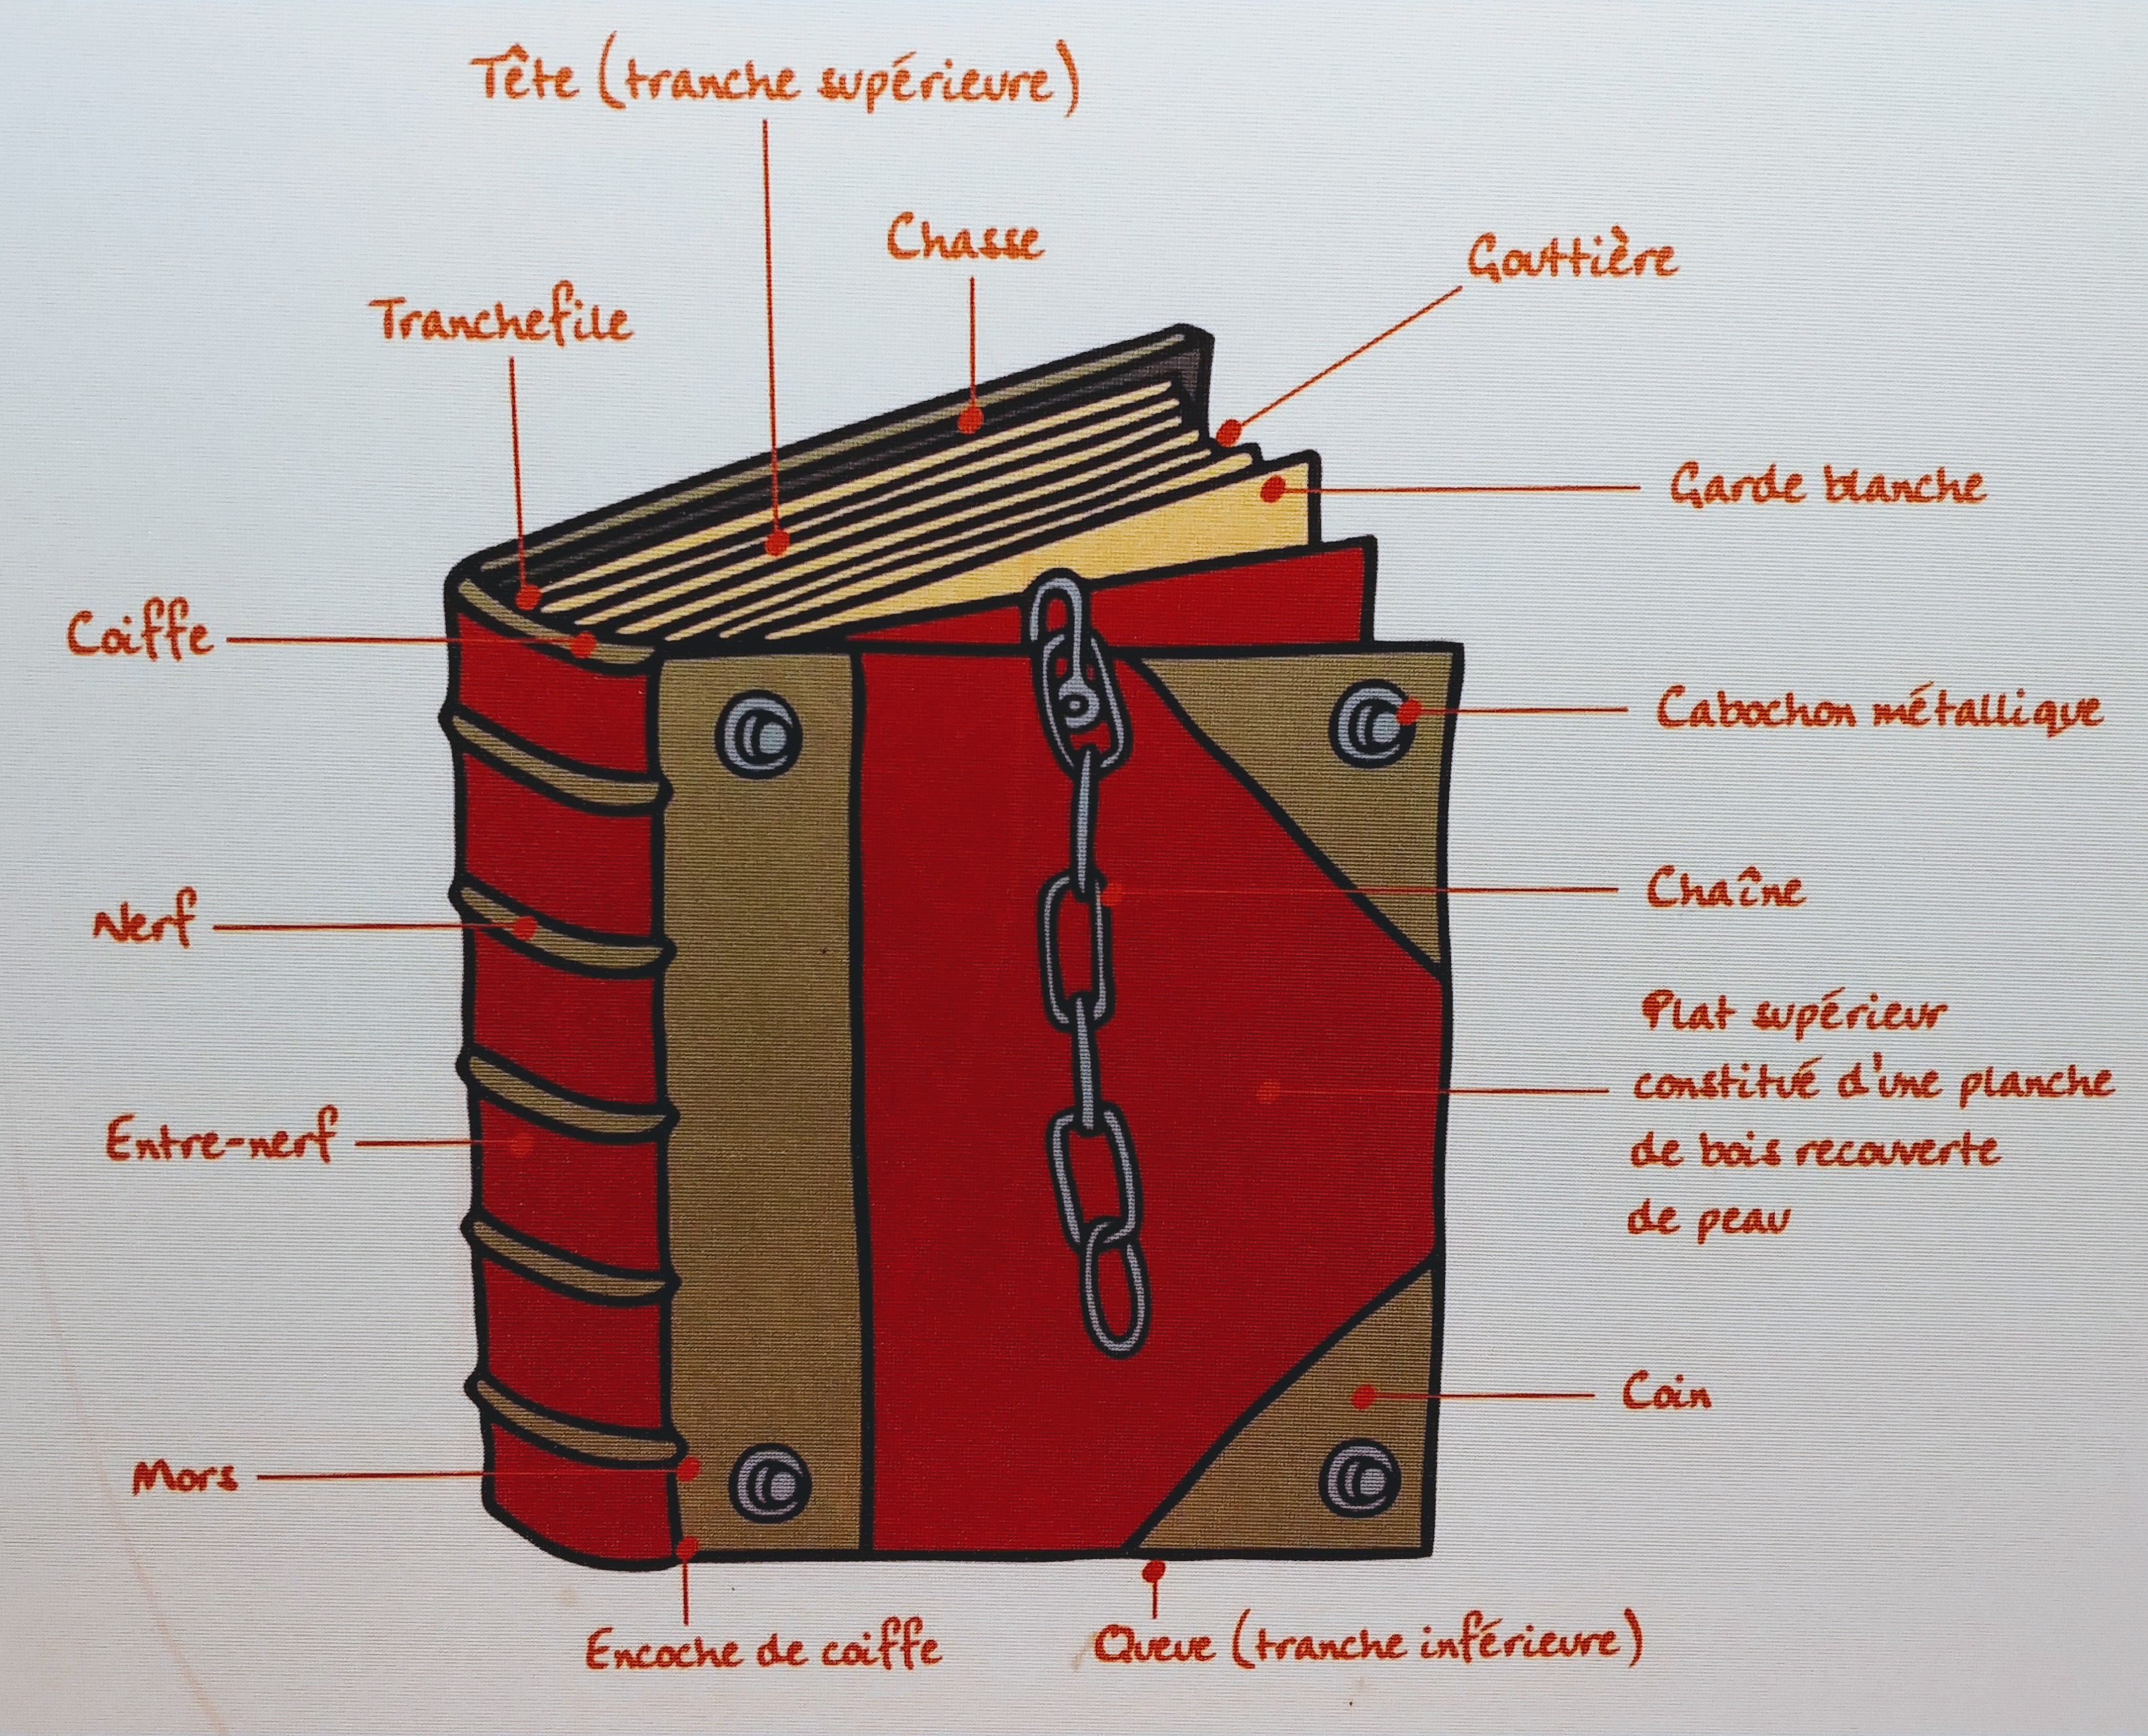 Tête (tranche supérieure)
Chasse
Gouttière
Tranchefile
Garde blanche
Coiffe
Cabochon métallique
Chaîne
Nerf
Plat supérieur
constitué d'une planche
de bois recouverte
de peau
Entre-nerf
Coin
Mors
Encoche de coiffe
Queue (tranche inférieure)